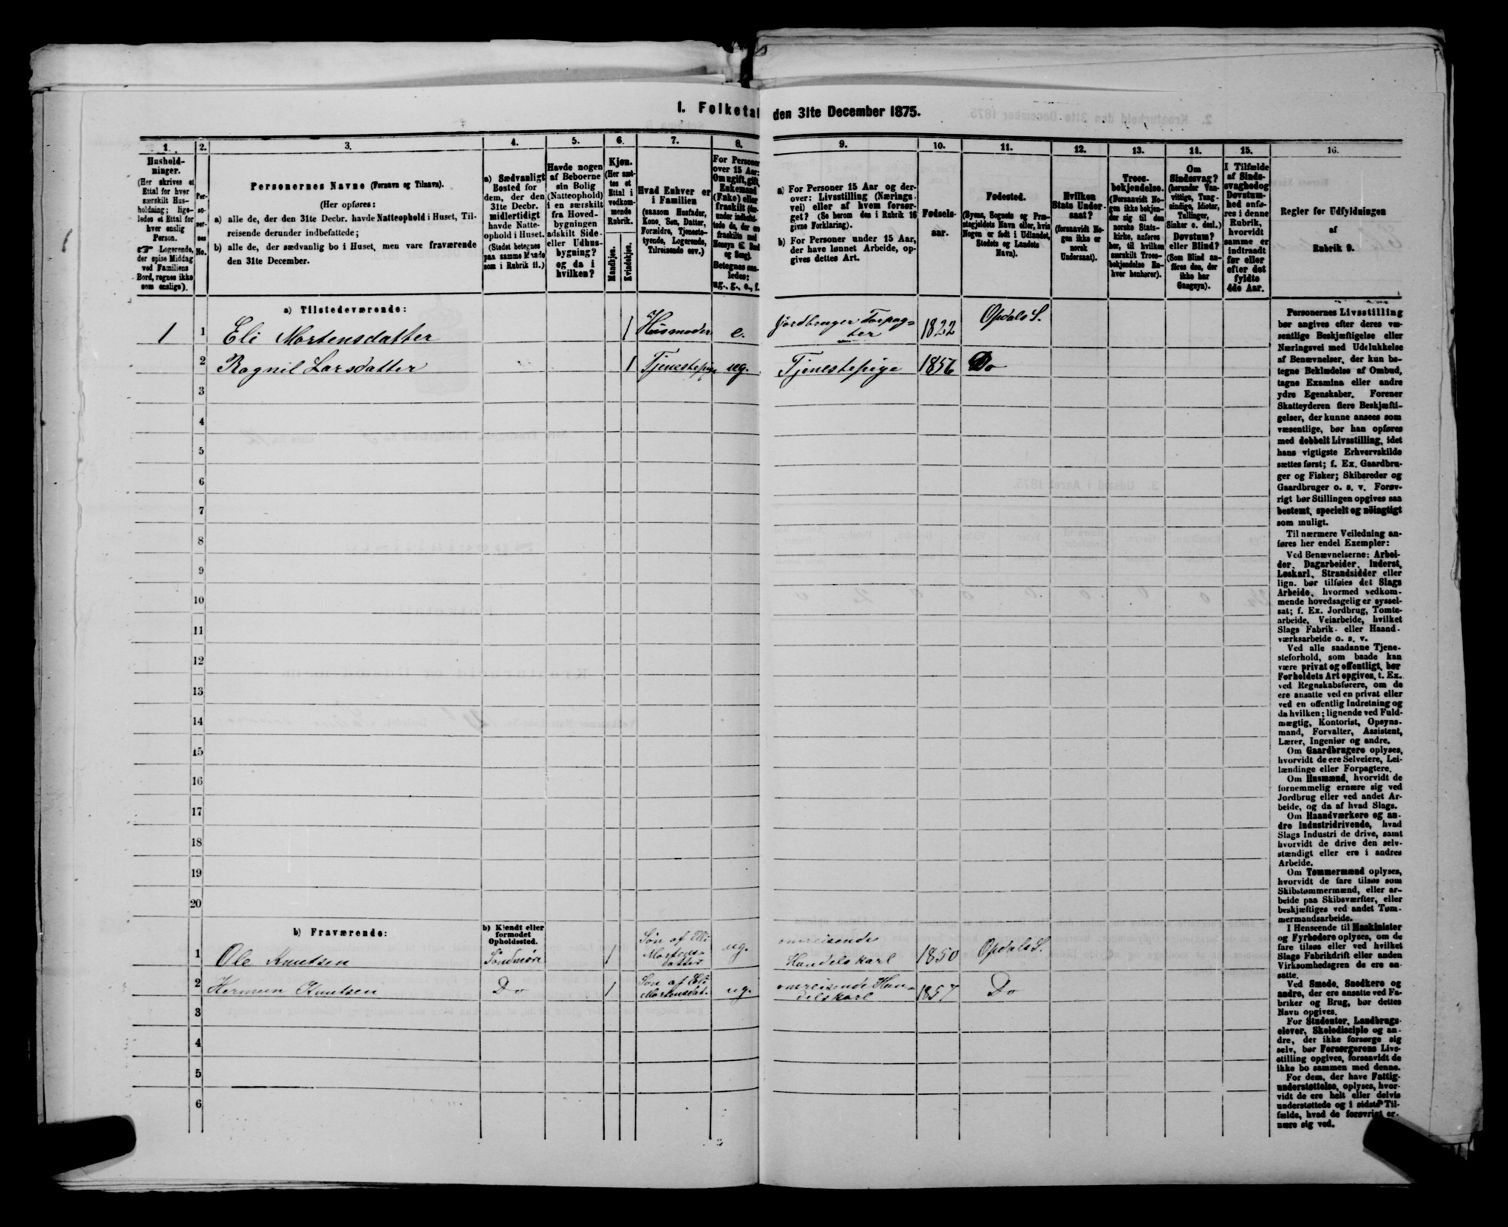 1. Folketal den 31te December 1875.
1.
2.
3.
4.
5.
6.
7.
8.
9.
10.
11.
12.
13.
14.
15.
16.
Hushold-
ninger.
(Her skrives et
Ettal for hver
særskilt Hus-
holdning; lige-
ledes et Ettal for
hver enslig
Person.
☞ Logerende,
der spise Middag
ved Familiens
Bord, regnes ikke
som enslige).
Per-
so-
ner-
nes
No.
Personernes Navne (Fornavn og Tilnavn).
(Her opføres:
a) alle de, der den 31te Decbr. havde Natteophold i Huset, Til-
reisende derunder indbefattede;
b) alle de, der sædvanlig bo i Huset, men vare fraværende
den 31te December.
a) Sædvanligt
Bosted for
dem, der den
31te Decbr.
midlertidigt
havde Natte-
ophold i Huset.
(Stedet betegnes
paa samme Maade
som i Rubrik 11.)
Havde nogen
af Beboerne
sin Bolig
(Natteophold)
i en særskilt
fra Hoved-
bygningen
adskilt Side-
eller Udhus-
bygning?
og da i
hvilken?
Kjøn.
(Her sæt-
tes et
Ettal i
vedkom-
mende
Rubrik.
Mandkjøn.
Kvindekjøn.
Hvad Enhver er
i Familien
(saasom Husfader,
Kone, Søn, Datter,
Forældre, Tjeneste-
tyende, Logerende,
Tilreisende osv.)
For Personer
over 15 Aar:
Om ugift, gift,
Enkemand
(Enke) eller
fraskilt
Betegnes saa-
ledes:
ug., g., e., f.
a) For Personer 15 Aar og der-
over: Livsstilling (Nærings-
vei) eller af hvem forsør-
get? (Se herom den i Rubrik 16
givne Forklaring).
b) For Personer under 15 Aar,
der have lønnet Arbeide, op-
gives dettes Art.
Fødsels-
aar.
Fødested.
(Byens, Sognets og Præ-
stegjældets Navn eller, hvis
Nogen er født i Udlandet,
Stedets og Landets
Navn).
Hvilken
Stats Under-
saat?
(forsaavidt No-
gen ikke er
norsk
Undersaat).
Troes-
bekjendelse.
(Forsaavidt No-
gen ikke bekjen-
der sig til den
norske Stats-
kirke, anføres
her, til hvilken
særskilt Troes-
bekjendelse En-
hver henhører).
Om
Sindssvag?
(herunder Van-
vittige, Tung-
sindige, Idioter,
Tullinger,
Sinker o. desl.)
Døvstum?
eller Blind?
(Som Blind an-
føres den, der
ikke har
Gangsyn).
I Tilfælde
af Sinds-
svaghed og
Døvstum-
hed anfø-
res i denne
Rubrik,
hvorvidt
samme er
indtraadt
før eller
efter det
fyldte
4de Aar.
Regler for Udfyldningen
af
Rubrik 9.
a) Tilstedeværende:
1 1 Eli Mortensdatter 1 Husmoder e. Jordbruger Forpag-
ter 1822 Opdals S.
2 Ragnil Larsdatter 1 Tjenestepige ug. Tjenestepige 1856 Do
3
4
5
6
7
8
9
10
11
12
13
14
15
16
17
18
19
20
b) Fraværende:
b) Kjendt eller
formodet
Opholdssted.
1 Ole Knutsen Söndmöre 1 Søn af Eli
Mortens-
datter ug. omreisende
Handelskarl 1850 Opdals S.
2 Hermein Knutsen Do 1 Søn af Eli
Mortensdat. ug. omreisende Han-
delskarl 1857 Do
3
4
5
6
Personernes Livsstilling
bør angives efter deres væ-
sentlige Beskjæftigelse eller
Næringsvei med Udelukkelse
af Benævnelser, der kun be-
tegne Beklædelse af Ombud,
tagne Examina eller andre
ydre Egenskaber. Forener
Skatteyderen flere Beskjæfti-
gelser, der kunne ansees som
væsentlige, bør han opføres
med dobbelt Livsstilling, idet
hans vigtigste Erhvervskilde
sættes først; f. Ex. Gaardbru-
ger og Fisker; Skibsreder og
Gaardbruger o. s. v. Forøv-
rigt bør Stillingen opgives saa
bestemt, specielt og nöiagtigt
som muligt.
Til nærmere Veiledning an-
føres her endel Exempler:
Ved Benævnelserne: Arbei-
der, Dagarbeider, Inderst,
Løskarl, Strandsidder eller
lign. bør tilføies det Slags
Arbeide, hvormed vedkom-
mende hovedsagelig er syssel-
sat; f. Ex. Jordbrug, Tomte-
arbeide, Veiarbeide, hvilket
Slags Fabrik- eller Haand-
værksarbeide o. s. v.
Ved alle saadanne Tjene-
steforhold, som baade kan
være privat og offentligt, bør
Forholdets Art opgives, t. Ex.
ved Regnskabsførere, om de
ere ansatte ved en privat eller
ved en offentlig Indretning og
da hvilken; lignende ved Fuld-
mægtig, Kontorist, Opsyns-
mand, Forvalter, Assistent,
Lærer, Ingeniør og andre.
Om Gaardbrugere oplyses,
hvorvidt de ere Selveiere, Lei-
lændinge eller Forpagtere.
Om Husmænd, hvorvidt de
fornemmelig ernære sig ved
Jordbrug eller ved andet Ar-
beide, og da af hvad Slags.
Om Haandværkere og an-
dre Industridrivende, hvad
Slags Industri de drive, samt
hvorvidt de drive den selv-
stændigt eller ere i andres
Arbeide.
Om Tømmermænd oplyses,
hvorvidt de fare tilsøs som
Skibstømmermænd, eller ar-
beide paa Skibsværfter, eller
beskjæftiges ved andet Tøm-
mermandsarbeide.
I Henseende til Maskinister
og Fyrbødere oplyses, om de
fare tilsøs eller ved hvilket
Slags Fabrikdrift eller anden
Virksomhedsgren de ere an-
satte.
Ved Smede, Snedkere og
andre, der ere ansatte ved Fa-
briker og Brug, bør dettes
Navn opgives.
For Studenter, Landbrugs-
elever, Skoledisciple og an-
dre, der ikke forsørge sig
selv, bør Forsørgerens Livs-
stilling opgives, forsaavidt de
ikke bo sammen med denne.
For dem, der have Fattig-
understøttelse, oplyses, hvor-
vidt de ere helt eller delvis
understøttede og i sidste Til-
fælde, hvad de forøvrigt er-
nære sig ved.